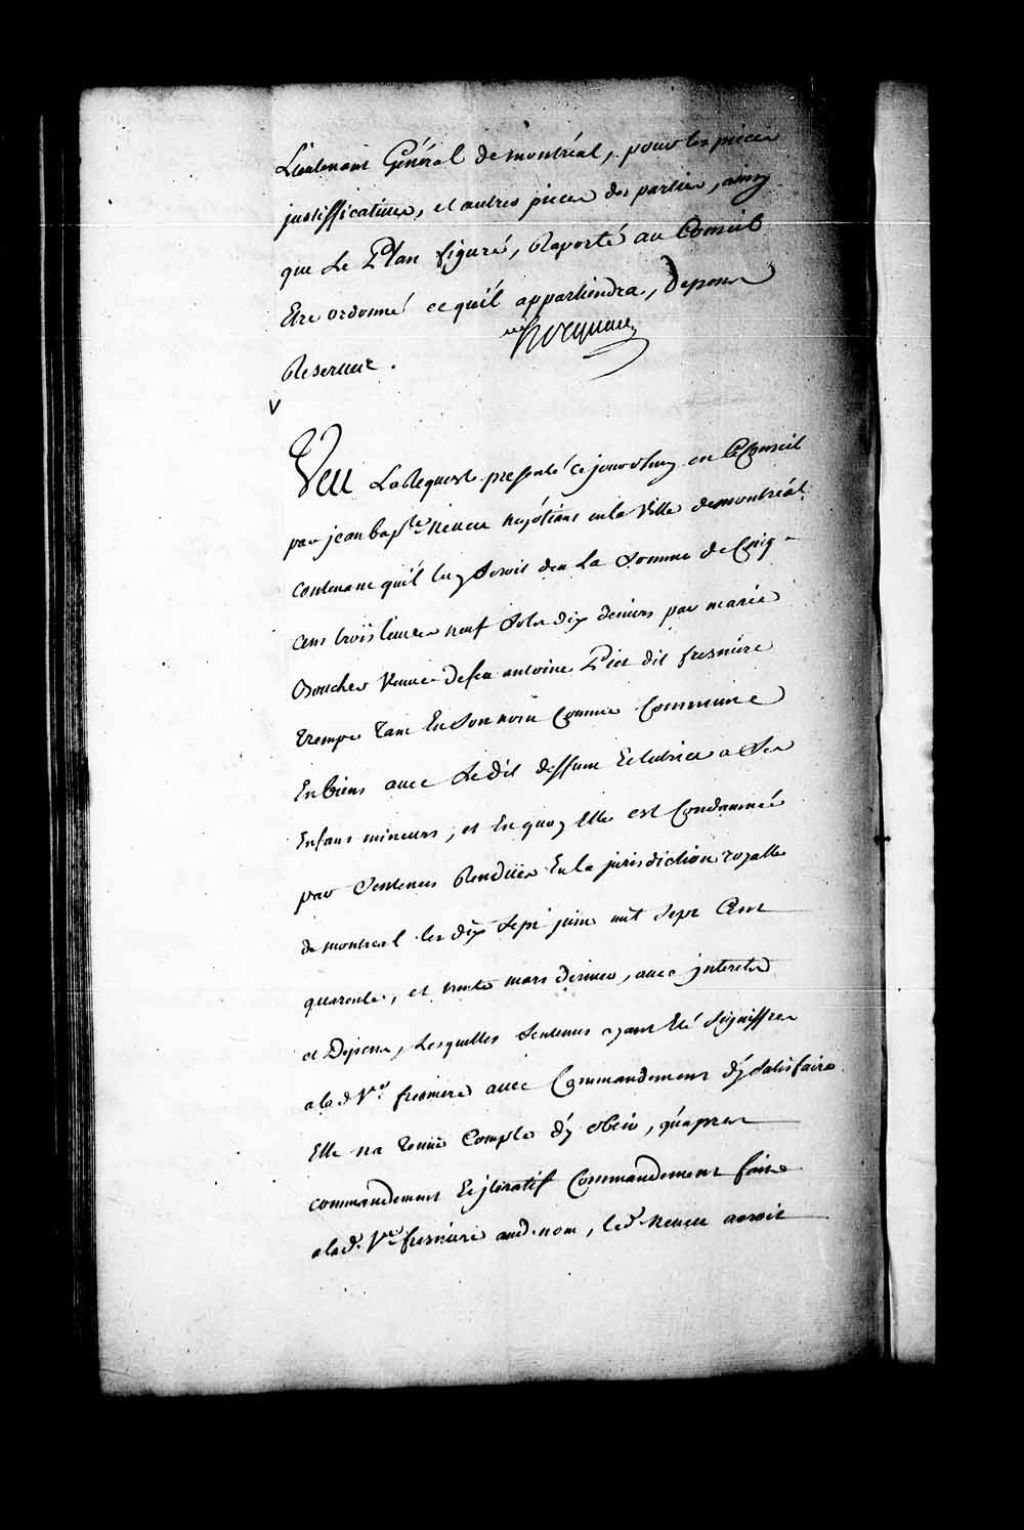 Lieutenant Général de montréal, pour les pieces
justifficatives, et autres pieces des parties, ainsy
que Le Plan figuré, Raporté au Conseil
Etre ordonné ce quil appartiendra, Depens
hocquart
Reservez.
V
Veu La Requeste presenté ce jourd'huy en ce Conseil
par jean bapte Neveu negotiant en la Ville de montréal
contenant quil luy Seroit deu La Somme de Cinq
cens trois livres neuf Sols dix deniers par marie
Boucher Veuve de feu antoine Piet dit fresniere
trempe tant En Son nom Comme Commune
En biens avec Ledit deffunt Et tutrice a Ses
Enfans mineurs, et En quoy Elle est Condamnée
par Sentences Rendües En la jurisdiction royalle
de montreal les dix Sept juin mil Sept Cent
quarente, et trente mars dernier, avec jnterets
et Depens, Lesquelles Sentences ayant Eté Signiffiées
a lad Ve fresniere avec Commandement d'y Satisfaire
Elle na tenüe Compte d'y obeir, qu'apres
commandement Et jteratif Commandement faits
a lad. Ve fresniere aud. nom, led. Neveu auroit